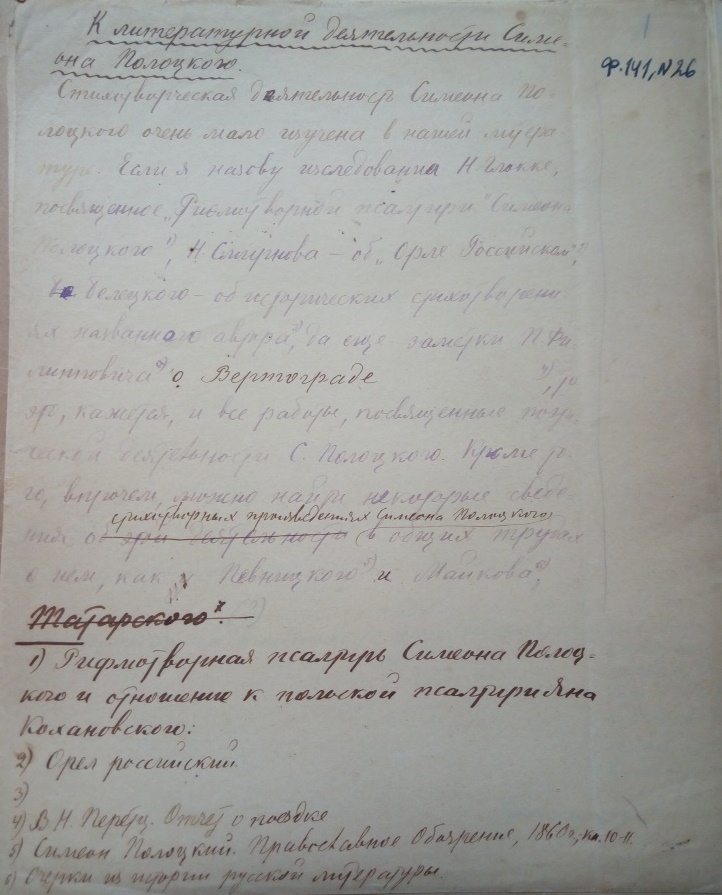 К литературной деятельности Симе-
она Полоцкого.
1
Ф.141, N26
Стихотворческая деятельность Симеона По-
лоцкого очень мало изучена в нашей литера
туре. Если я назову исследования Н Глокке,
посвященное „Рифмотворной псалтири" Симеона
Полоцкого¹⁾, Н Смирнова – об „Орле Российском"²⁾,
Белецкого – об исторических стихотворени-
ях названного автора³⁾, да еще заметки П Фи-
липповича⁴⁾ о Вертограде ⁴⁾, то
это, кажется, и все работы, посвященные поэти-
ческой деятельности С. Полоцкого. Кроме то
го, впрочем, можно найти некоторые сведе-
стихотворных произведениях Симеона Полоцкого
ния о этой деятельности (в общих трудах
о нем, как у Певницкого⁵⁾ и Майкова⁶⁾,
Татарского⁷.
1) Рифмотворная псалтирь Симеона Полоц-
кого и отношение к польской псалтири Яна
Кохановского:
2) Орел российский.
3)
4) В Н. Перетц. Отчет о поездке
5) Симеон Полоцкий. Православное Обозрение, 1860 г, кн. 10-11.
6) Очерки из истории русской литературы.